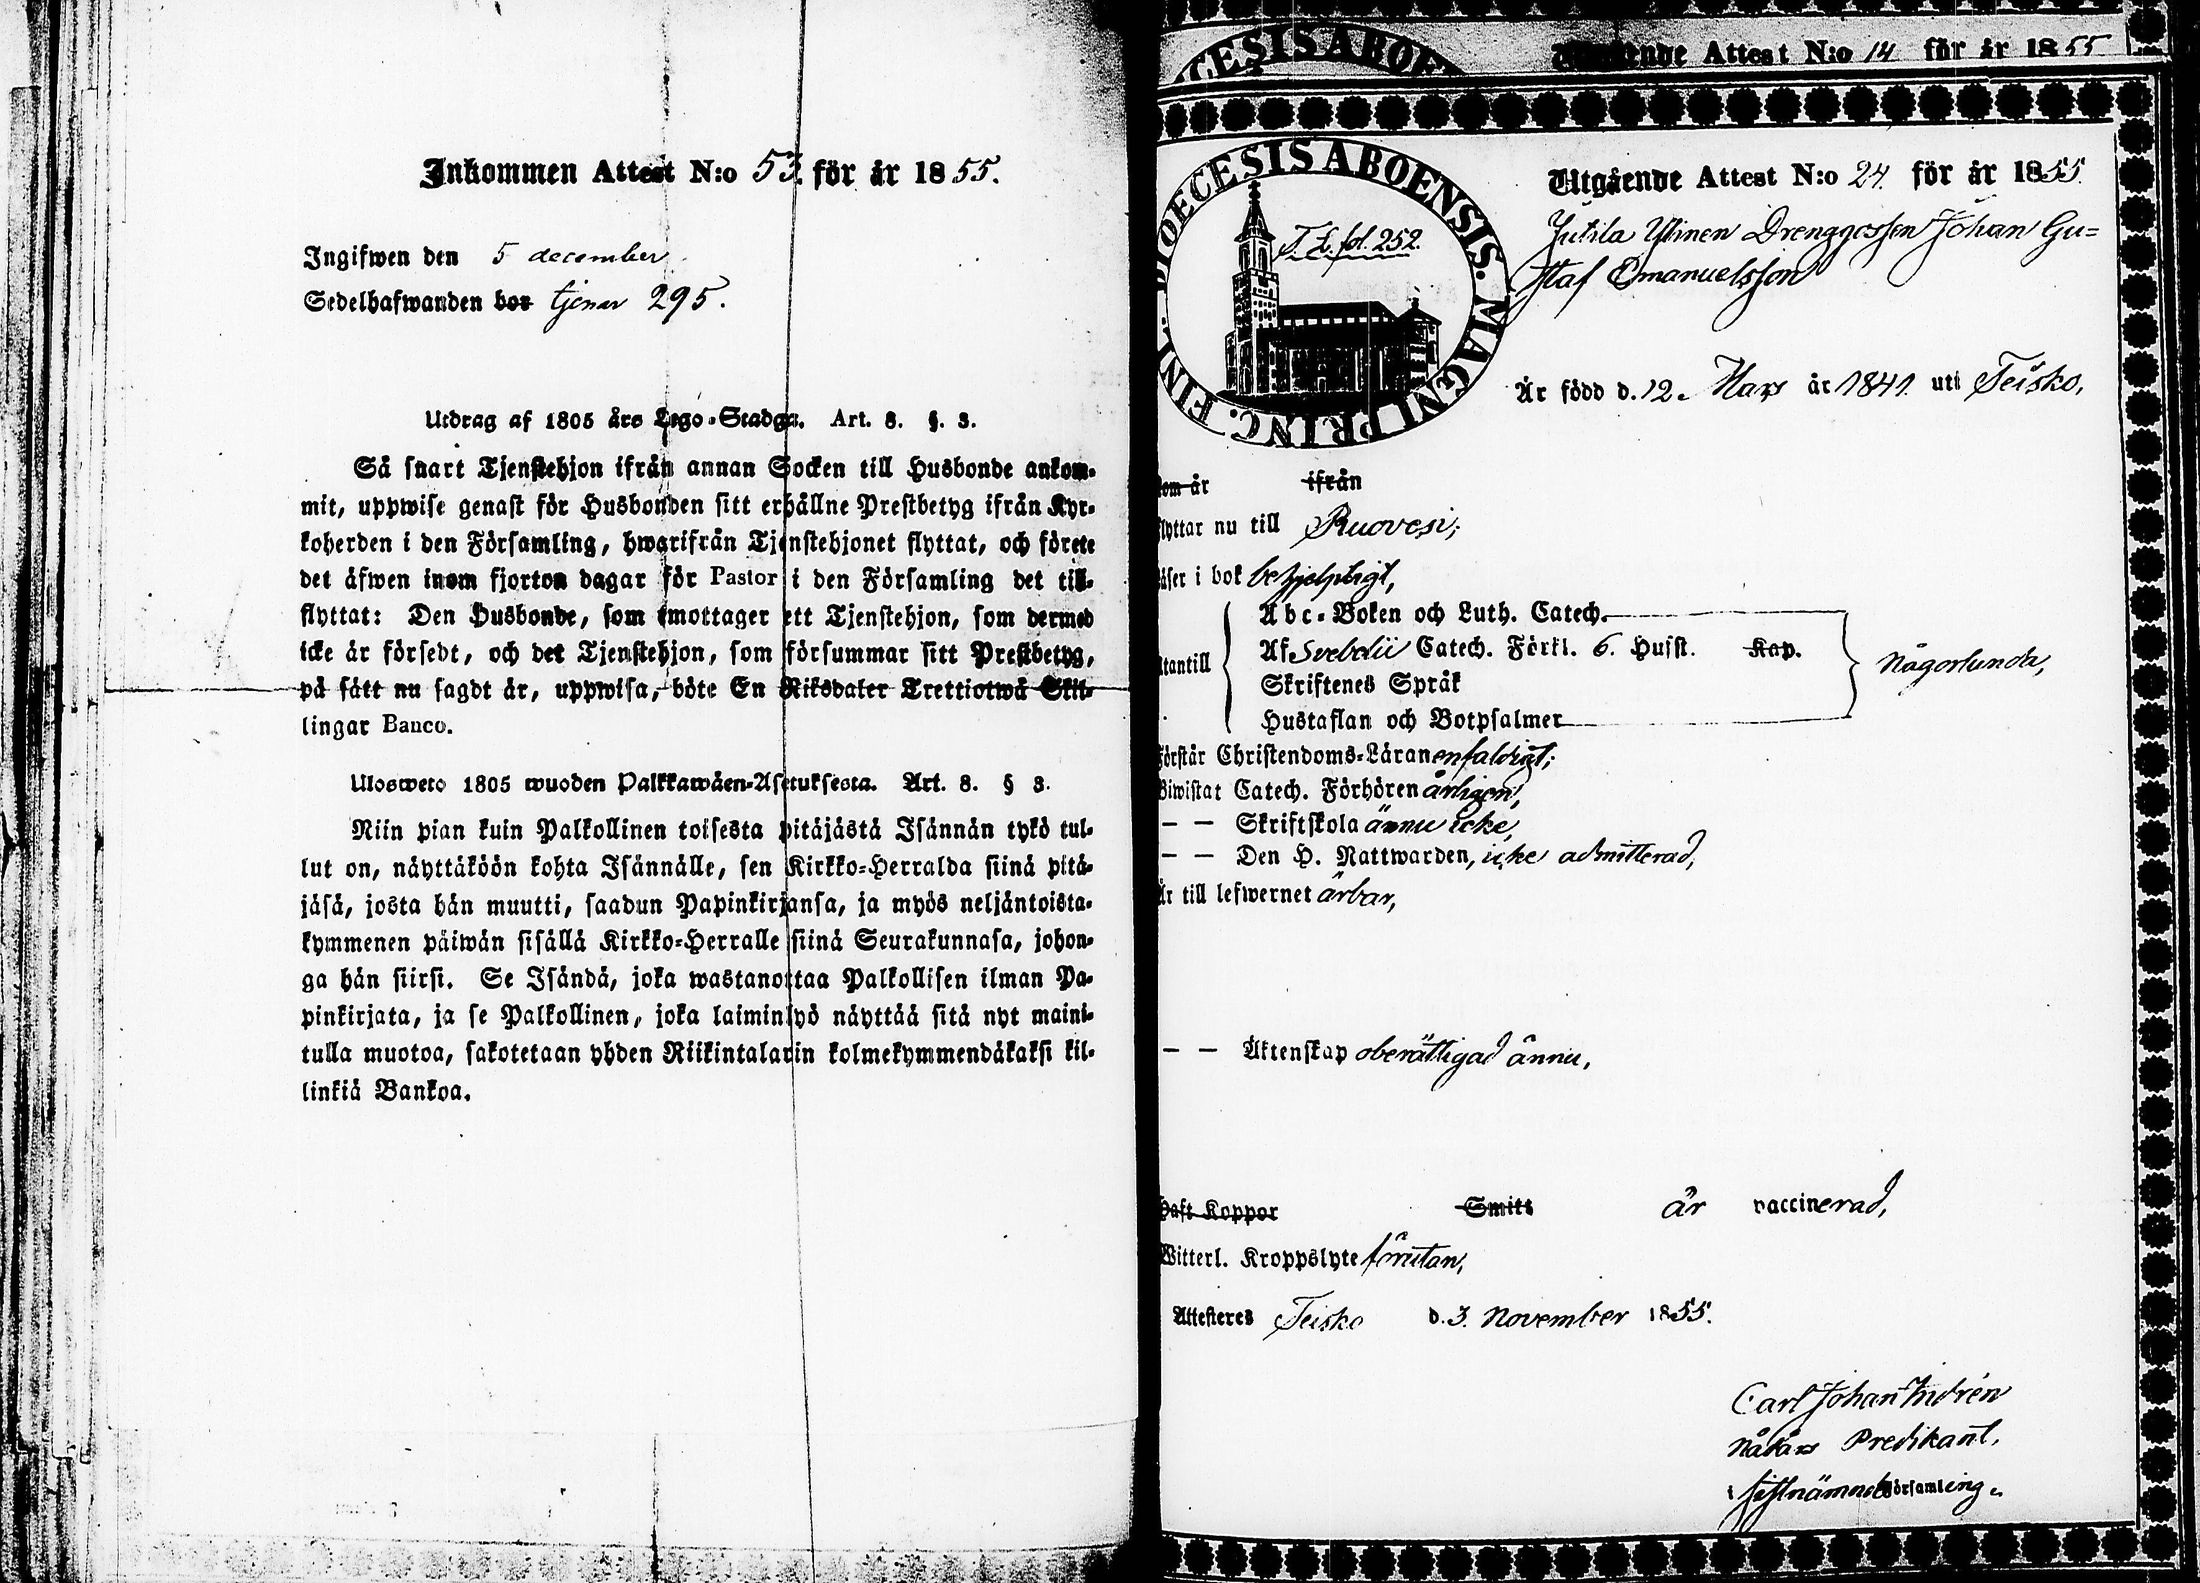 Inkommen Attest N:o 53. för år 1855.
Ingifwen den 5 december
Sedelhafwanden bor tjenar 295.
Utdrag af 1805 års Lego-Stadga. Art. 8. §. 3.
Så snart Tjenstehjon ifrån annan Socken till Husbonde ankom-
mit, uppwise genast för Husbonden sitt erhållne Prestbetyg ifrån Kyr-
koherden i den Församling, hwarifrån Tjenstehjonet flyttat, och förete
det äfwen inom fjorton dagar för Pastor i den Församling det till-
flyttat: Den Husbonde, som emottager ett Tjenstehjon, som dermed
icke är försedt, och det Tjenstehjon, som försummar sitt Prestbetyg,
på sätt nu sagdt är, uppwisa, böte En Riksdaler Trettiotwå Skil-
lingar Banco.
Ulosweto 1805 wuoden Palkkawäen-Asetuksesta. Art. 8. § 3.
Niin pian kuin Palkollinen toisesta pitäjästä Isännän tykö tul-
lut on, näyttäköön kohta Isännälle, sen Kirkko-Herralda siinä pitä-
jäsä, josta hän muutti, saadun Papinkirjansa, ja myös neljäntoista-
kymmenen päiwän sisällä Kirkko-Herralle siinä Seurakunnasa, johon-
ga hän siirsi. Se Isändä, joka wastanottaa Palkollisen ilman Pa-
pinkirjata, ja se Palkollinen, joka laiminlyö näyttää sitä nyt maini-
tulla muotoa, sakotetaan yhden Riikintalarin kolmekymmendäkaksi kil-
linkiä Bankoa.
CESIS ABOEN
Attest N:o 14 för år 1855
DIOECESIS ABOENSIS. MAGNI PRINC. FINL.
T. L. fol. 252.
Utgående Attest N:o 24. för år 1855.
Jutila Ylinen Drenggossen Johan Gu=
staf Emanuelsson
Är född d. 12. Mars år 1841. uti Teisko,
som är ifrån
flyttar nu till Ruovesi;
läser i bok behjelpligt,
Utantill
Abc-Boken och Luth. Catech.
Af Svebelii Catech. Förkl. 6. Husst. Kap.
Skriftenes Språk
Hustaflan och Botpsalmer
någorlunda,
Förstår Christendoms-Läran enfaldigt;
Biwistat Catech. Förhören årligen,
— — Skriftskola ännu icke,
— — Den H. Nattwarden, icke admitterad,
Är till lefwernet ärbar,
— — Äktenskap oberättigad ännu,
Haft Koppor Smitt är vaccinerad,
Witterl. Kroppslyte förutan,
Attesteres Teisko d. 3. November 1855.
Carl Johan Indrén
Nådårs Predikant,
i sistnämnde Församling.